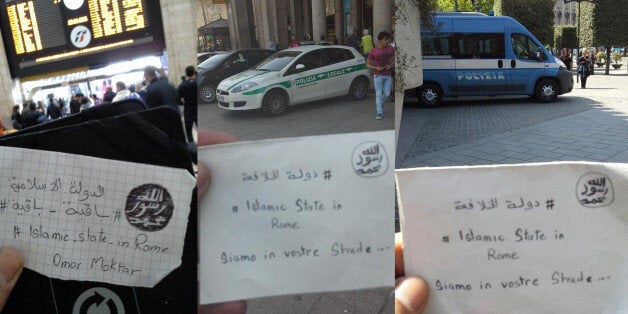 الدولة الاسلامية
الله
رسول
محمد
#باقية - باقية#
# Islamic_state_in_Rome
Omar Moktar
POLIZIA LOCALE
الله
رسول
محمد
# دولة الخلافة
# Islamic State in
Rome
Siamo in vostre Strade ...
POLIZIA
الله
رسول
محمد
# دولة الخلافة
# Islamic State in
Rome
Siamo in vostre Strade ...